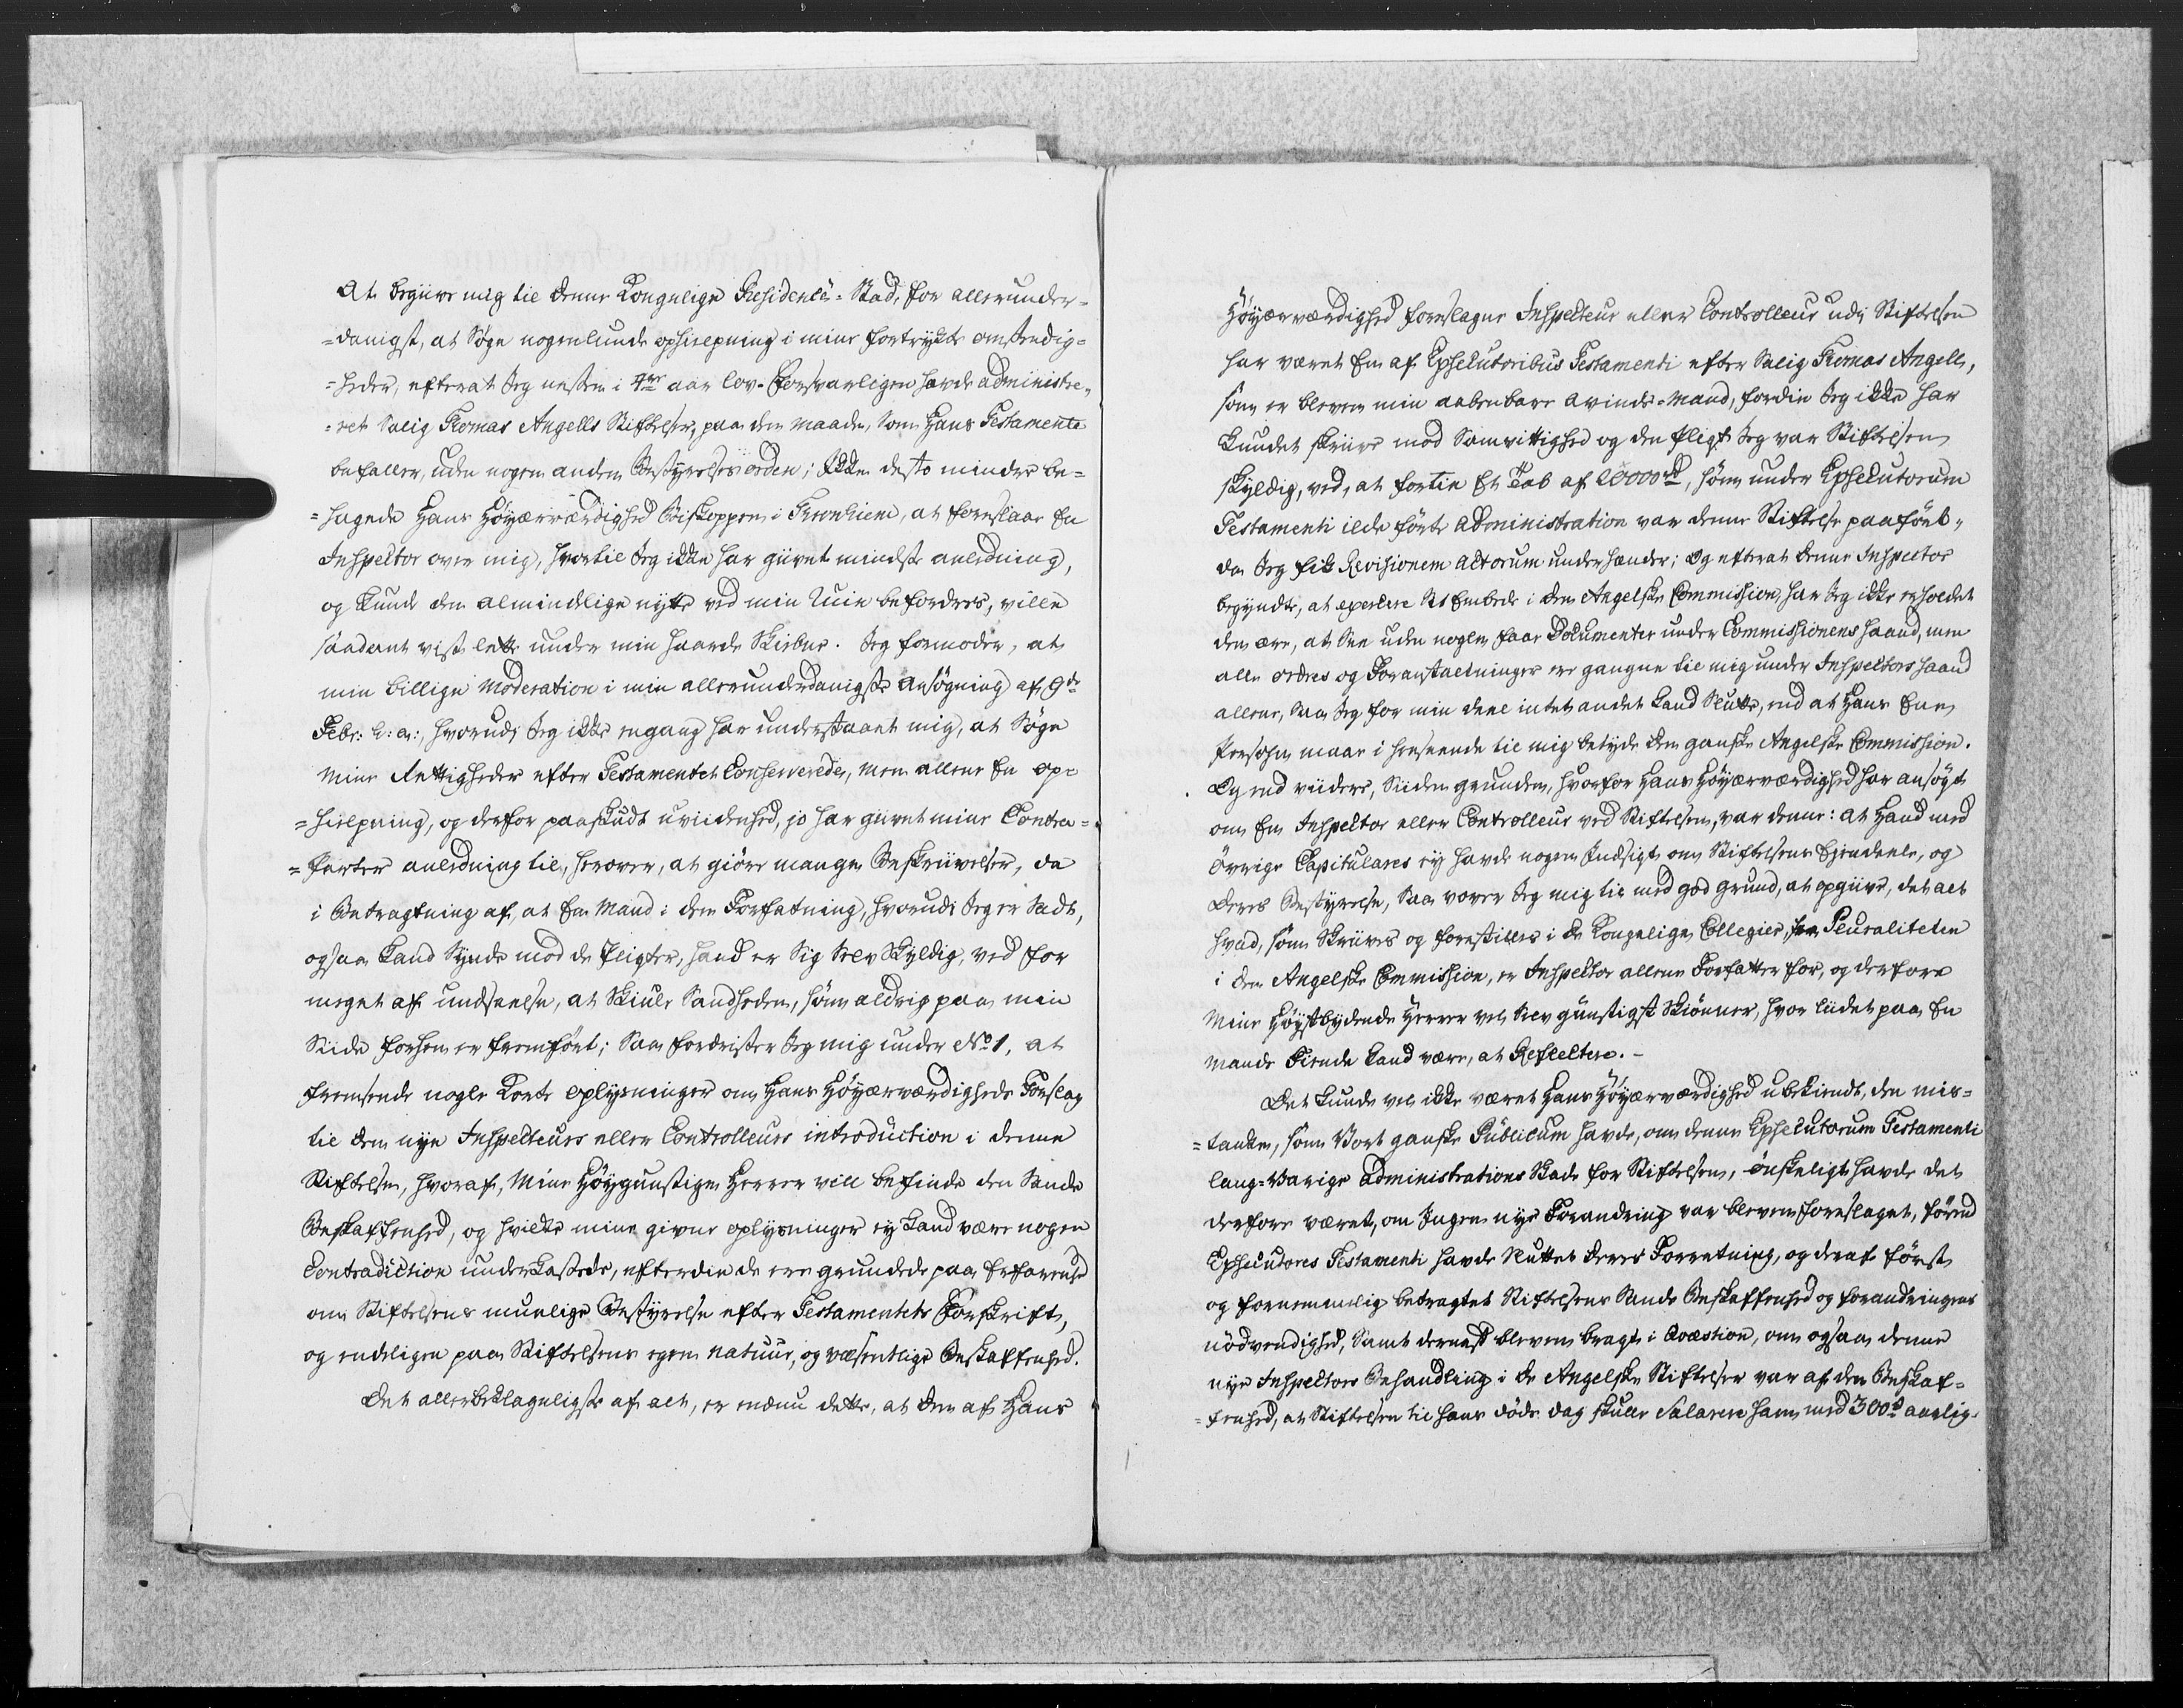 At begive mig til denne Kongelige Residence-Stad, for allerunder-
=danigst, at Søge nogenlunde ophielpning i mine fortrykte omstendig-
=heder, efterat Jeg nesten i 4re aar lov-forsvarligen havde administre-
=ret Salig Thomas Angells Stiftelser, paa den maade, som Hans Testamente
befaller, uden nogen anden Bestyrelses orden; Ikke desto minder be-
=hagede Hans Høyærværdighed Biskoppen i Tronhiem, at foreslaae En
Inspector over mig, hvortil Jeg ikke har givet mindste anledning,
og kunde den almindelige nytte ved min Ruin befordres, ville
saadant vist lette under min haarde Skiebne. Jeg formoder, at
min billige Moderation i min allerunderdanigste Ansøgning af 9de
Febr: h: a:, hvorudi Jeg ikke engang har understaaet mig, at Søge
Mine Rettigheder efter Testamentet Conserverede, men allene En op-
=hielpning, og derfor paaskudt uvidenhed, jo har givet mine Contra-
=Parter anledning til, herover, at giøre mange Beskrivelser, da
i Betragtning af, at En Mand i den Forfatning, hvorudi Jeg er Sadt,
ogsaa kand Synde mod de Pligter, hand er Sig Selv Skyldig, ved for
meget af undseelse, at Skiule Sandheden, som aldrig paa min
Side forhen er fremført; Saa fordrister Jeg mig under No 1, at
fremsende nogle Korte oplysninger om Hans Høyærværdigheds Forslag
til den nye Inspecteurs eller Controlleurs introduction i denne
Stiftelse, hvoraf, Mine Høygunstige Herrer vill befinde den Sande
Beskaffenhed, og hvilke mine givne oplysninger ey kand være nogen
Contradiction underkastede, efterdie de ere grundede paa Erfarenhed
om Stiftelsens muelige Bestyrelse efter Testamentets Forskrift,
og endeligen paa Stiftelsens egen natuur, og væsentlige Beskaffenhed.
Det allerbeklageligste af alt, er endnu dette, at den af Hans
Høyærværdighed foreslagne Inspecteur eller Controlleur udi Stiftelsen
har været En af Exsecutoribus Testamenti efter Salig Thomas Angell,
som er bleven min aabenbare Avinds-Mand, fordie Jeg ikke har
kundet skrive mod Samvittighed og den Pligt Jeg var Stiftelsen
skyldig, ved, at fortie Et Tab af 20000 rd, som under Exsecutorum
Testamenti ilde førte Administration var denne Stiftelse paaført,
da Jeg fik Revisionem Actorum under hænder; Og efterat denne Inspector
begyndte, at exercere Sit Embede i den Angelske Commission, har Jeg ikke erholdet
den ære, at See uden nogle faae Documenter under Commissionens haand, men
alle ordres og Foranstaltninger ere gangne til mig under Inspectors haand
allene, Saa Jeg for min deel intet andet kand Slutte, end at Hans Ene
Persohn maae i henseende til mig betyde den ganske Angelske Commission.
Og end videre, Siden grunden, hvorfor Hans Høyærværdighed har ansøgt
om En Inspector eller Controlleur ved Stiftelsen, var denne: at Hand med
øvrige Capitulares ey havde nogen Indsigt om Stiftelsens Eiendeele, og
deres Bestyrelse, Saa vover Jeg mig til med god grund, at opgive, det alt
hvad, som Skrives og forestilles i de Kongelige Collegier, fra Pluraliteten
i den Angelske Commission, er Inspector allene Forfatter for, og derfore
Mine Høystbydende Herrer vel Selv gunstigst Skiønner, hvor lidet paa En
Mands Fiende kand være, at Reflectere.-
Det kunde vel ikke været Hans Høyærværdighed ubekiendt, den mis-
=tanke, som Vort ganske Publicum havde, om denne Exsecutorum Testamenti
lang-Varige Administrations Skade for Stiftelsen, ønskeligt havde det
derfore været, om Ingen nye Forandring var bleven foreslaget, førend
Exsecutores Testamenti havde Sluttet deres Forretning, og deraf først
og fornemmelig betragtet Stiftelsens Sande Beskaffenhed og forandringens
nødvendighed, Samt dernæst bleven bragt i Qvæstion, om ogsaa denne
nye Inspectors Behandling i de Angelske Stiftelser var af den Beskaf-
=fenhed, at Stiftelsen til hans døde dag skulle Salarere ham med 300 rd aarlig.